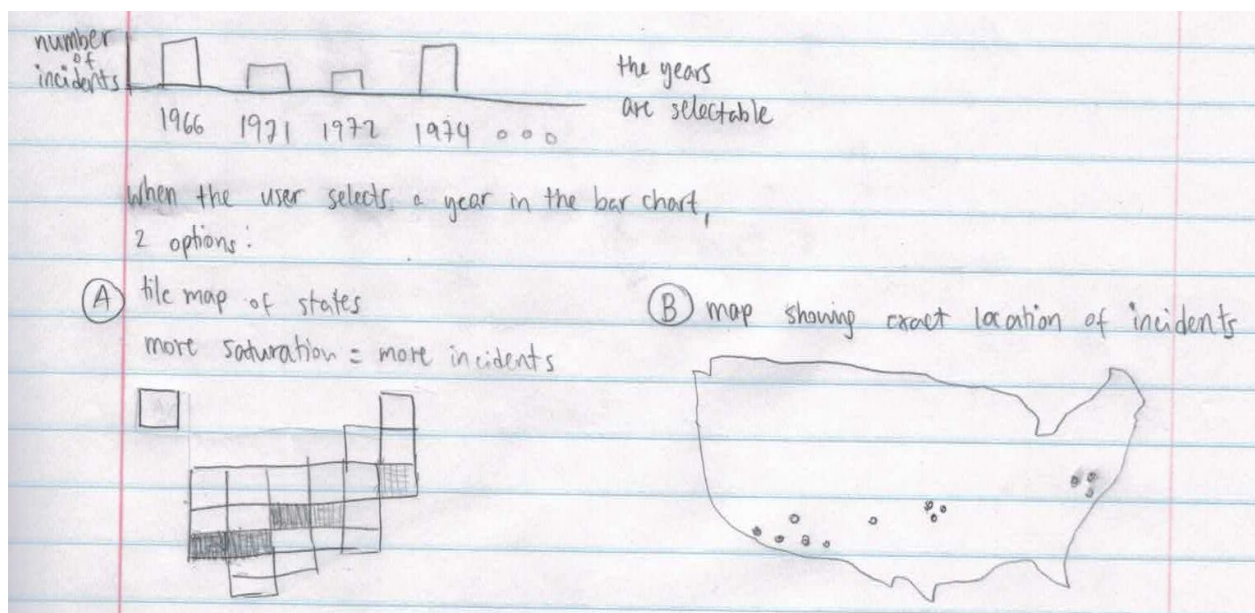 number
of
incidents
1966 1971 1972 1974 ooo
the years
are selectable
When the user selects a year in the bar chart,
2 options:
A tile map of states
more saturation = more incidents
B map showing exact location of incidents